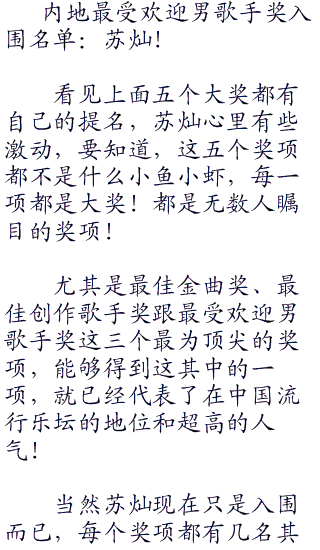 内地最受欢迎男歌手奖入
围名单：苏灿！
看见上面五个大奖都有
自己的提名，苏灿心里有些
激动，要知道，这五个奖项
都不是什么小鱼小虾，每一
项都是大奖！都是无数人瞩
目的奖项！
尤其是最佳金曲奖、最
佳创作歌手奖跟最受欢迎男
歌手奖这三个最为顶尖的奖
项，能够得到这其中的一
项，就已经代表了在中国流
行乐坛的地位和超高的人
气！
当然苏灿现在只是入围
而已，每个奖项都有几名其